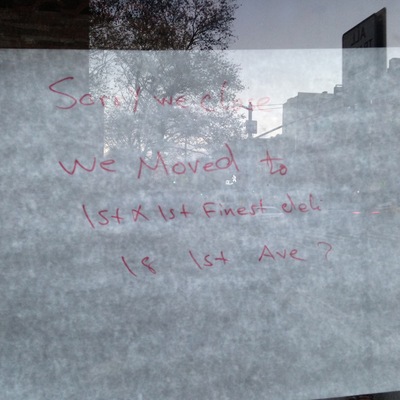 Sorry we close
We Moved to
1st x 1st Finest deli
18 1st Ave ?